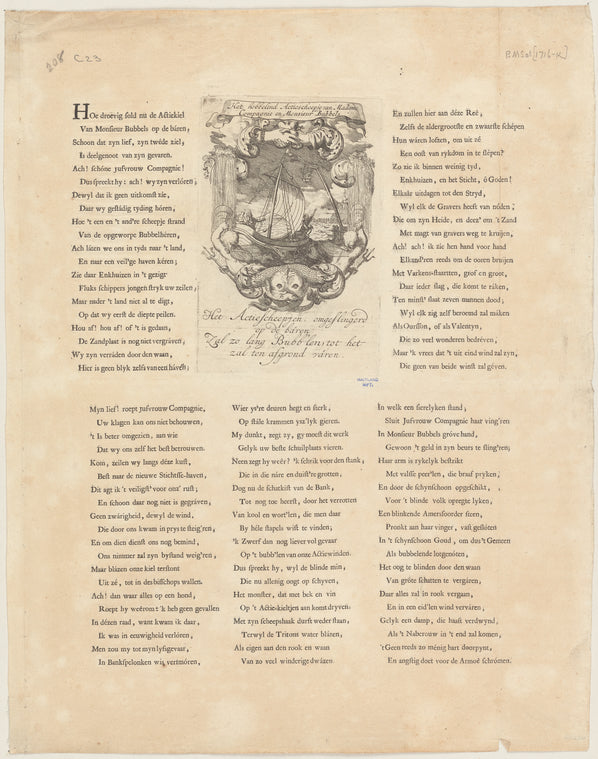 208 C23
BMSat [1716-x]
Het hobbelend Actiescheepje van Madame
Compagnie en Monsieur Bubbels
HOe droevig sold nu de Actiekiel
Van Monsieur Bubbels op de báren,
Schoon dat zyn lief, zyn twéde ziel,
Is deelgenoot van zyn gevaren.
Ach! schóne Jufvrouw Compagnie!
Dus spreekt hy: ach! wy zyn verlóren;
Dewyl dat ik geen uitkomst zie,
Daar wy gestádig tyding hóren,
Hoe 't een en 't and're scheepje strand
Van de opgeworpe Bubbelhéren,
Ach láten we ons in tyds naar 't land,
En naar een veil'ge haven kéren;
Zie daar Enkhuizen in 't gezigt
Fluks schippers jongen stryk uw zeilen;
Maar nader 't land niet al te digt,
Op dat wy eerst de diepte peilen.
Hou af! hou af! of 't is gedaan,
De Zandplaat is nog niet vergráven;
Wy zyn verráden door den waan,
Hier is geen blyk zelfs van een háven;
Het Actiescheepjen, omgeslingerd
op de báren,
Zal zo lang Bubb'len, tot het
zal ten afgrond váren.
En zullen hier aan déze Reé,
Zelfs de aldergrootste en zwaarste schépen
Hun wáren lossen, om uit zé
Een oost van rykdom in te slépen?
Zo zie ik binnen weinig tyd,
Enkhuizen, en het Sticht, ô Goden!
Elkaâr uitdagen tot den Stryd,
Wyl elk de Gravers heeft van nóden,
Die om zyn Heide, en deez' om 't Zand
Met magt van gravers weg te kruijen,
Ach! ach! ik zie hen hand voor hand
Elkand'ren reeds om de ooren bruijen
Met Varkensstaartten, grof en groot,
Daar ieder slag, die komt te ráken,
Ten minst' slaat zeven mannen dood;
Wyl elk zig zelf beroemd zal máken
Als Ourson, of als Valentyn,
Die zo veel wonderen bedréven,
Maar 'k vrees dat 't uit eind wind zal zyn,
Die geen van beide winst zal géven.
MAITLAND
GIFT.
Myn lief! roept Jufvrouw Compagnie,
Uw klagen kan ons niet behouwen,
't Is béter omgezien, aan wie
Dat wy ons zelf het best betrouwen.
Kom, zeilen wy langs déze kust,
Best naar de nieuwe Stichtsse-haven,
Dit agt ik 't veiligst' voor ons' rust;
En schoon daar nog niet is gegráven,
Geen zwárigheid, dewyl de wind,
Die door ons kwam in prys te steig'ren,
En om dien dienst ons nog bemind,
Ons nimmer zal zyn bystand weig'ren,
Maar blázen onze kiel terstont
Uit zé, tot in des bisschops wallen.
Ach! dan waar alles op een hond,
Roept hy weêrom: 'k heb geen gevallen
In dézen raad, want kwam ik daar,
Ik was in eeuwigheid verlóren,
Men zou my tot myn lyfsgevaar,
In Bankspelonken wis vermóren,
Wier ys're deuren hegt en sterk,
Op stále krammen yss'lyk gieren.
My dunkt, zegt zy, gy moest dit werk
Gelyk uw beste schuilplaats vieren.
Neen zegt hy weêr? 'k schrik voor den stank,
Die in die náre en duist're grotten,
Dog nu de schatkist van de Bank,
Tot nog toe heerst, door het verrotten
Van kool en wort'len, die men daar
By héle stapels wist te vinden;
'k Zwerf dan nog liever vol gevaar
Op 't bubb'len van onze Actiewinden.
Dus spreekt hy, wyl de blinde min,
Die nu allenig oogt op schyven,
Het monster, dat met bek en vin
Op 't Actie-kieltjen aan komt dryven:
Met zyn scheepshaak durft weder staan,
Terwyl de Tritons water blázen,
Als eigen aan den rook en waan
Van zo veel winderige dwázen.
In welk een sierelyken stand;
Sluit Jufvrouw Compagnie haar ving'ren
In Monsieur Bubbels gróve hand,
Gewoon 't geld in zyn beurs te sling'ren;
Haar arm is rykelyk bestrikt
Met valsse peer'len, die braaf pryken,
En door de schynschoon opgeschikt,
Voor 't blinde volk opregte lyken,
Een blinkende Amersfoorder steen,
Pronkt aan haar vinger, vast geslóten
In 't schynschoon Goud, om dus 't Gemeen
Als bubbelende lotgenóten,
Het oog te blinden door den waan
Van gróte schatten te vergáren,
Daar alles zal in rook vergaan,
En in een eid'len wind verváren,
Gelyk een damp, die haast verdwynd,
Als 't Naberouw in 't end zal komen,
't Geen reeds zo ménig hart doorpynt,
En angstig doet voor de Armoê schrómen.